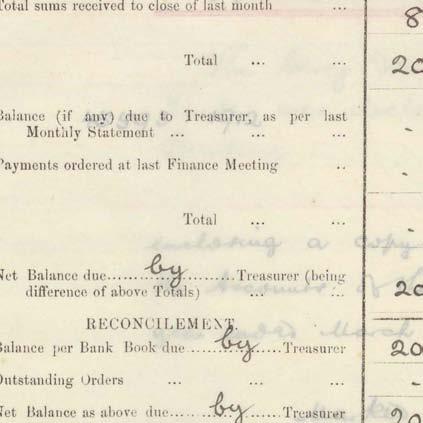 Total sums received to close of last month ... 8
Total ... ... 20
Balance (if any) due to Treasurer, as per last
Monthly Statement ... ... ... -
Payments ordered at last Finance Meeting .. -
Total ... ... -
Net Balance due......by......Treasurer (being
difference of above Totals) ... ... 20
RECONCILEMENT
Balance per Bank Book due......by......Treasurer 20
Outstanding Orders ... ... ... -
Net Balance as above due......by......Treasurer 20
enclosing a copy
March